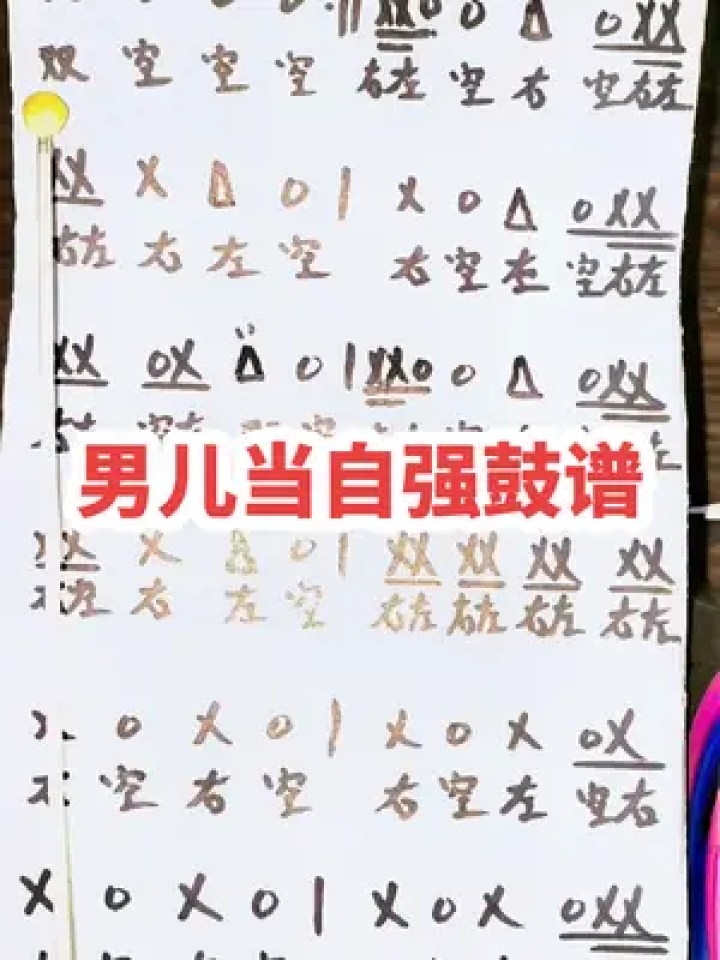 双 空 空 空 右左 空 右 空右左
XX X △ 0 | X 0 △ 0XX
右左 右 左 空 右 空 右 空右左
XX 0X △ 0 | XX0 0 △ 0XX
男儿当自强鼓谱
XX X △ 0 | XX XX XX XX
右左 右 左 空 右左 右左 右左 右左
0 X 0 | X 0 X 0X
空 右 空 右 空 左 空右
X 0 X 0 | X 0 X 0XX